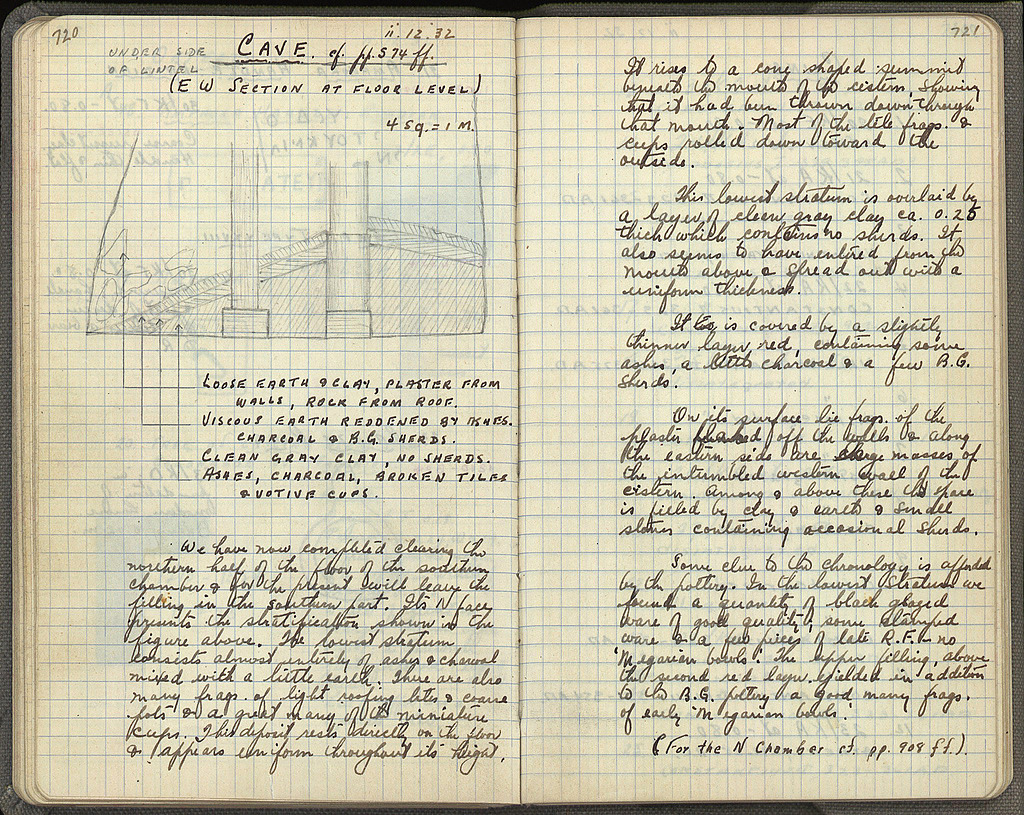 720
ii.12.32
UNDER SIDE
OF LINTEL
CAVE. cf. pp. 574 ff.
(E W SECTION AT FLOOR LEVEL)
4 SQ. = 1 M.
LOOSE EARTH & CLAY, PLASTER FROM
WALLS, ROCK FROM ROOF.
VISCOUS EARTH REDDENED BY ASHES.
CHARCOAL & B.G. SHERDS.
CLEAN GRAY CLAY, NO SHERDS.
ASHES, CHARCOAL, BROKEN TILES
& VOTIVE CUPS.
We have now completed clearing the
northern half of the floor of the southern
chamber & for the present will leave the
filling in the southern part. Its N face
presents the stratification shown in the
figure above. The lowest stratum
consists almost entirely of ashes & charcoal
mixed with a little earth. There are also
many frags. of light roofing tiles & coarse
pots & a great many of the miniature
cups. This deposit rests directly on the floor
& appears uniform throughout its height.
721
It rises to a cone shaped summit
beneath the mouth of the cistern, showing
that it had been thrown down through
that mouth. Most of the tile frags. &
cups rolled down toward the
outside.
This lowest stratum is overlaid by
a layer of clean gray clay ca. 0.25
thick which contains no sherds. It
also seems to have entered from the
mouth above & spread out with a
uniform thickness.
It too is covered by a slightly
thinner layer red, containing some
ashes, a little charcoal & a few B.G.
sherds.
On its surface lie frags. of the
plaster off the walls & along
the eastern side are large masses of
the intumbled western wall of the
cistern. Among & above these the space
is filled by clay & earth & small
stones containing occasional sherds.
Some clue to the chronology is afforded
by the pottery. In the lowest stratum we
found a quantity of black glazed
ware of good quality, some stamped
ware & a few pieces of late R.F. - no
"Megarian bowls". The upper filling, above
the second red layer yielded in addition
to the B.G. pottery a good many frags.
of early "Megarian bowls".
(For the N Chamber cf. pp. 908 ff.)